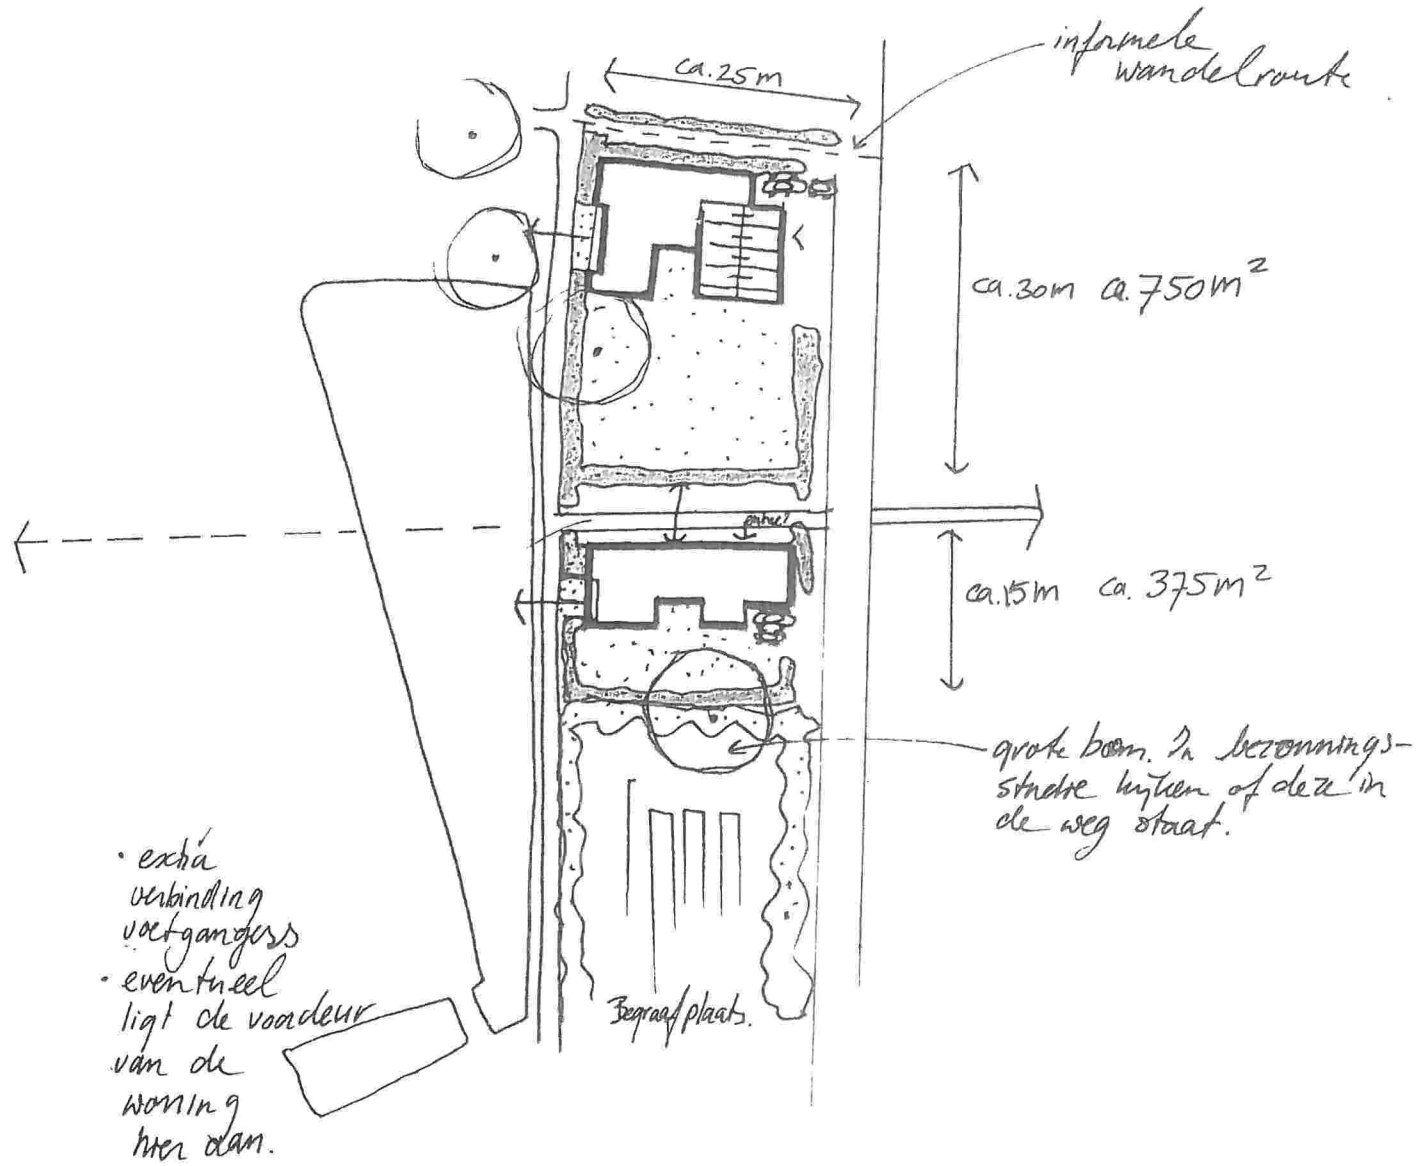 informele
wandelroute
ca. 25m
ca. 30m ca. 750m²
entree?
ca. 15m ca. 375m²
grote boom. In bezonnings-
studie kijken of deze in
de weg staat.
• extra
verbinding
voetgangers
• eventueel
ligt de voordeur
van de
woning
hier aan.
Begraafplaats.